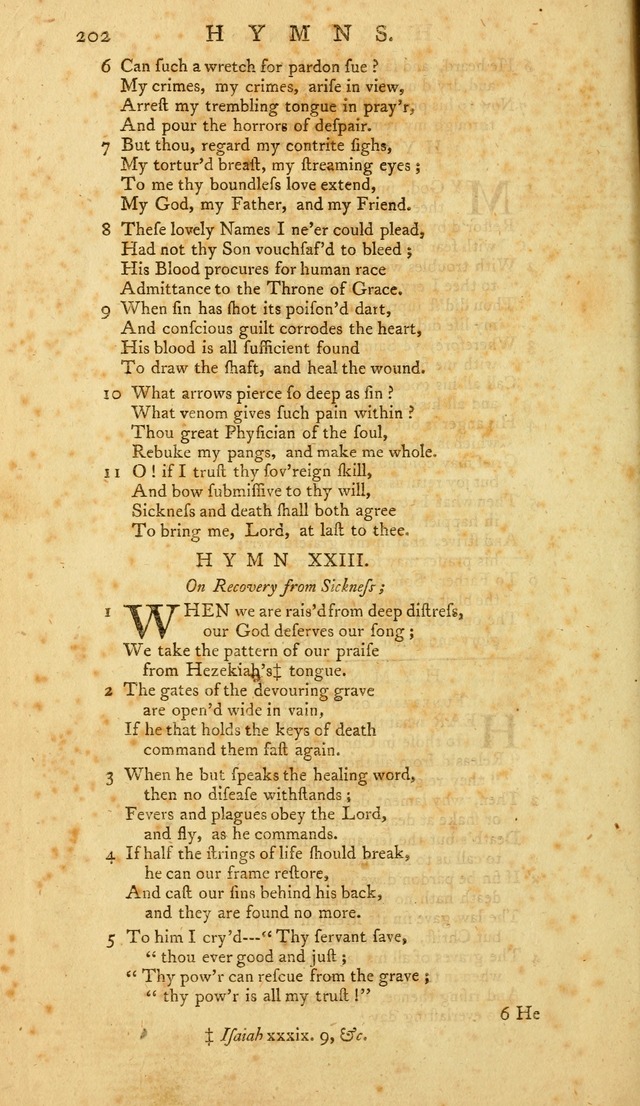 202 HYMNS.
6 Can ſuch a wretch for pardon ſue ?
My crimes, my crimes, ariſe in view,
Arreſt my trembling tongue in pray'r,
And pour the horrors of deſpair.
7 But thou, regard my contrite ſighs,
My tortur'd breaſt, my ſtreaming eyes ;
To me thy boundleſs love extend,
My God, my Father, and my Friend.
8 Theſe lovely Names I ne'er could plead,
Had not thy Son vouchſaf'd to bleed ;
His Blood procures for human race
Admittance to the Throne of Grace.
9 When ſin has ſhot its poiſon'd dart,
And conſcious guilt corrodes the heart,
His blood is all ſufficient found
To draw the ſhaft, and heal the wound.
10 What arrows pierce ſo deep as ſin ?
What venom gives ſuch pain within ?
Thou great Phyſician of the ſoul,
Rebuke my pangs, and make me whole.
11 O ! if I truſt thy ſov'reign ſkill,
And bow ſubmiſſive to thy will,
Sickneſs and death ſhall both agree
To bring me, Lord, at laſt to thee.
HYMN XXIII.
On Recovery from Sickneſs ;
1 WHEN we are rais'd from deep diſtreſs,
our God deſerves our ſong ;
We take the pattern of our praiſe
from Hezekiah's‡ tongue.
2 The gates of the devouring grave
are open'd wide in vain,
If he that holds the keys of death
command them faſt again.
3 When he but ſpeaks the healing word,
then no diſeaſe withſtands ;
Fevers and plagues obey the Lord,
and fly, as he commands.
4 If half the ſtrings of life ſhould break,
he can our frame reſtore,
And caſt our ſins behind his back,
and they are found no more.
5 To him I cry'd---“ Thy ſervant ſave,
“ thou ever good and juſt ;
“ Thy pow'r can reſcue from the grave ;
“ thy pow'r is all my truſt !”
6 He
‡ Iſaiah xxxix. 9, &c.